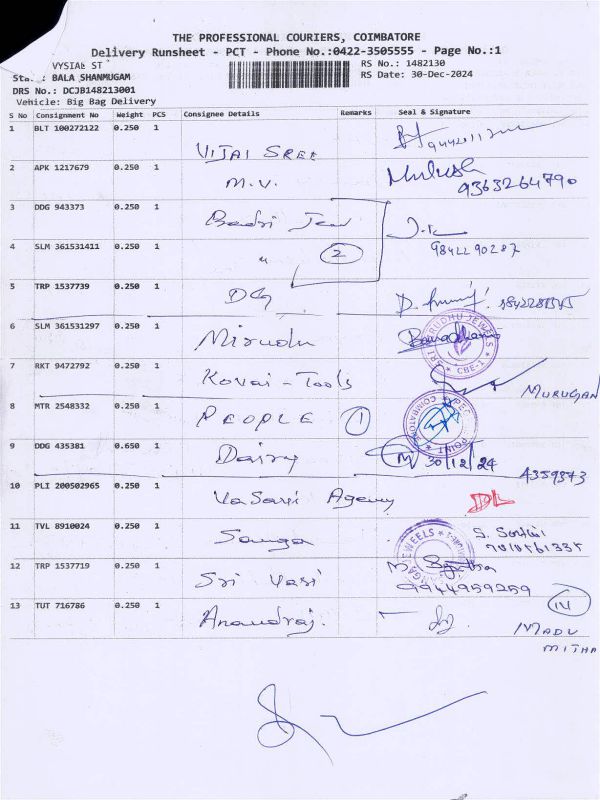 THE PROFESSIONAL COURIERS, COIMBATORE
Delivery Runsheet - PCT - Phone No.:0422-3505555 - Page No.:1
VYSIAL ST
RS No.: 1482130
BALA SHANMUGAM
RS Date: 30-Dec-2024
DRS No.: DCJB148213001
Vehicle: Big Bag Delivery
S No Consignment No Weight PCS Consignee Details Remarks Seal & Signature
1 BLT 100272122 0.250 1 VIJAI SREE
2 APK 1217679 0.250 1 M.V. Mukesh 9363264790
3 DDG 943373 0.250 1 Badri Jew
4 SLM 361531411 0.250 1 " 2 9842290287
5 TRP 1537739 0.250 1 DG
6 SLM 361531297 0.250 1 Mirudu
7 RKT 9472792 0.250 1 Kovai - Tools MURUGAN
8 MTR 2548332 0.250 1 PEOPLE 1
9 DDG 435381 0.650 1 Dairy M 30/12/24 4359373
10 PLI 200502965 0.250 1 Vasavi Agency DL
11 TVL 8910024 0.250 1 Sanga
12 TRP 1537719 0.250 1 Sri Vasi 9944959259
13 TUT 716786 0.250 1 Anandraj. MADU
MITHA